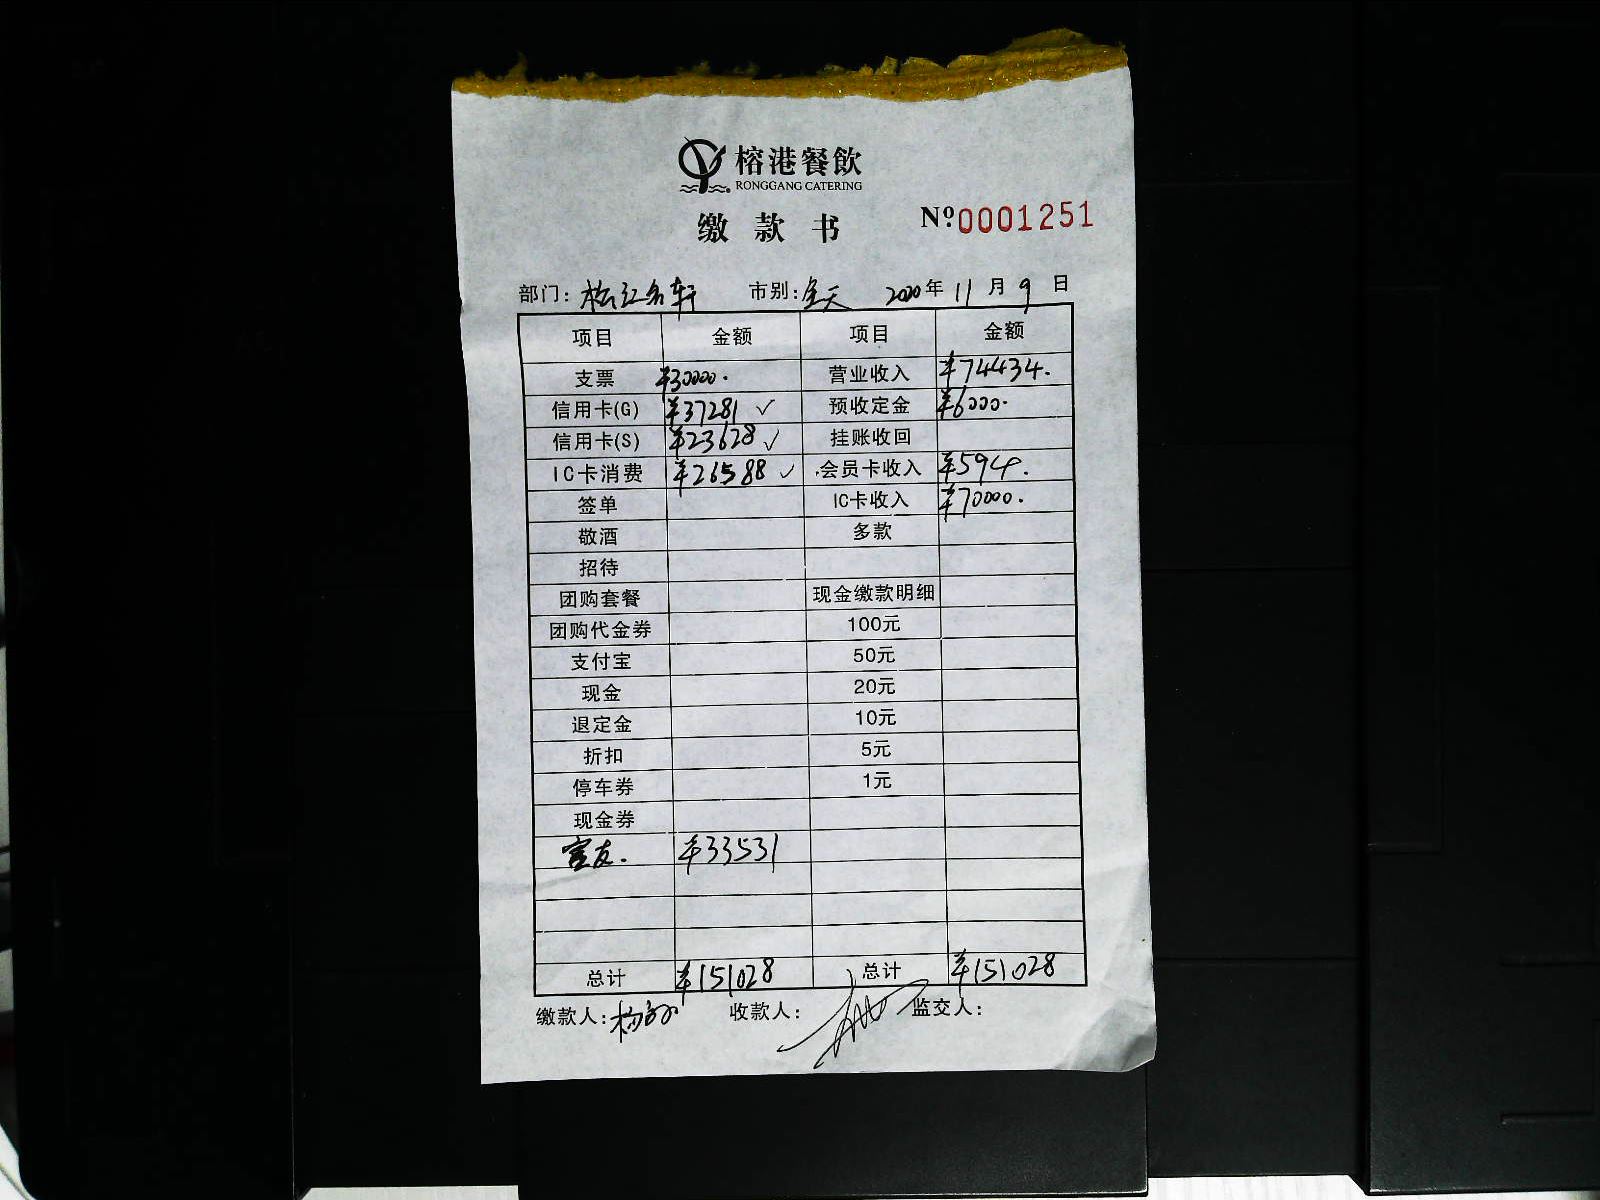 榕港餐飲
RONGGANG CATERING
缴款书 Nº0001251
部门: 松江名轩 市别: 全天 2020年11月9日
项目 金额 项目 金额
支票 ¥30000. 营业收入 ¥74434.
信用卡(G) ¥37281 ✓ 预收定金 ¥6000.
信用卡(S) ¥23628 ✓ 挂账收回
IC卡消费 ¥26588 ✓ 会员卡收入 ¥594.
签单 IC卡收入 ¥70000.
敬酒 多款
招待
团购套餐 现金缴款明细
团购代金券 100元
支付宝 50元
现金 20元
退定金 10元
折扣 5元
停车券 1元
现金券
¥33531
总计 ¥151028 总计 ¥151028
缴款人: 收款人: 监交人: